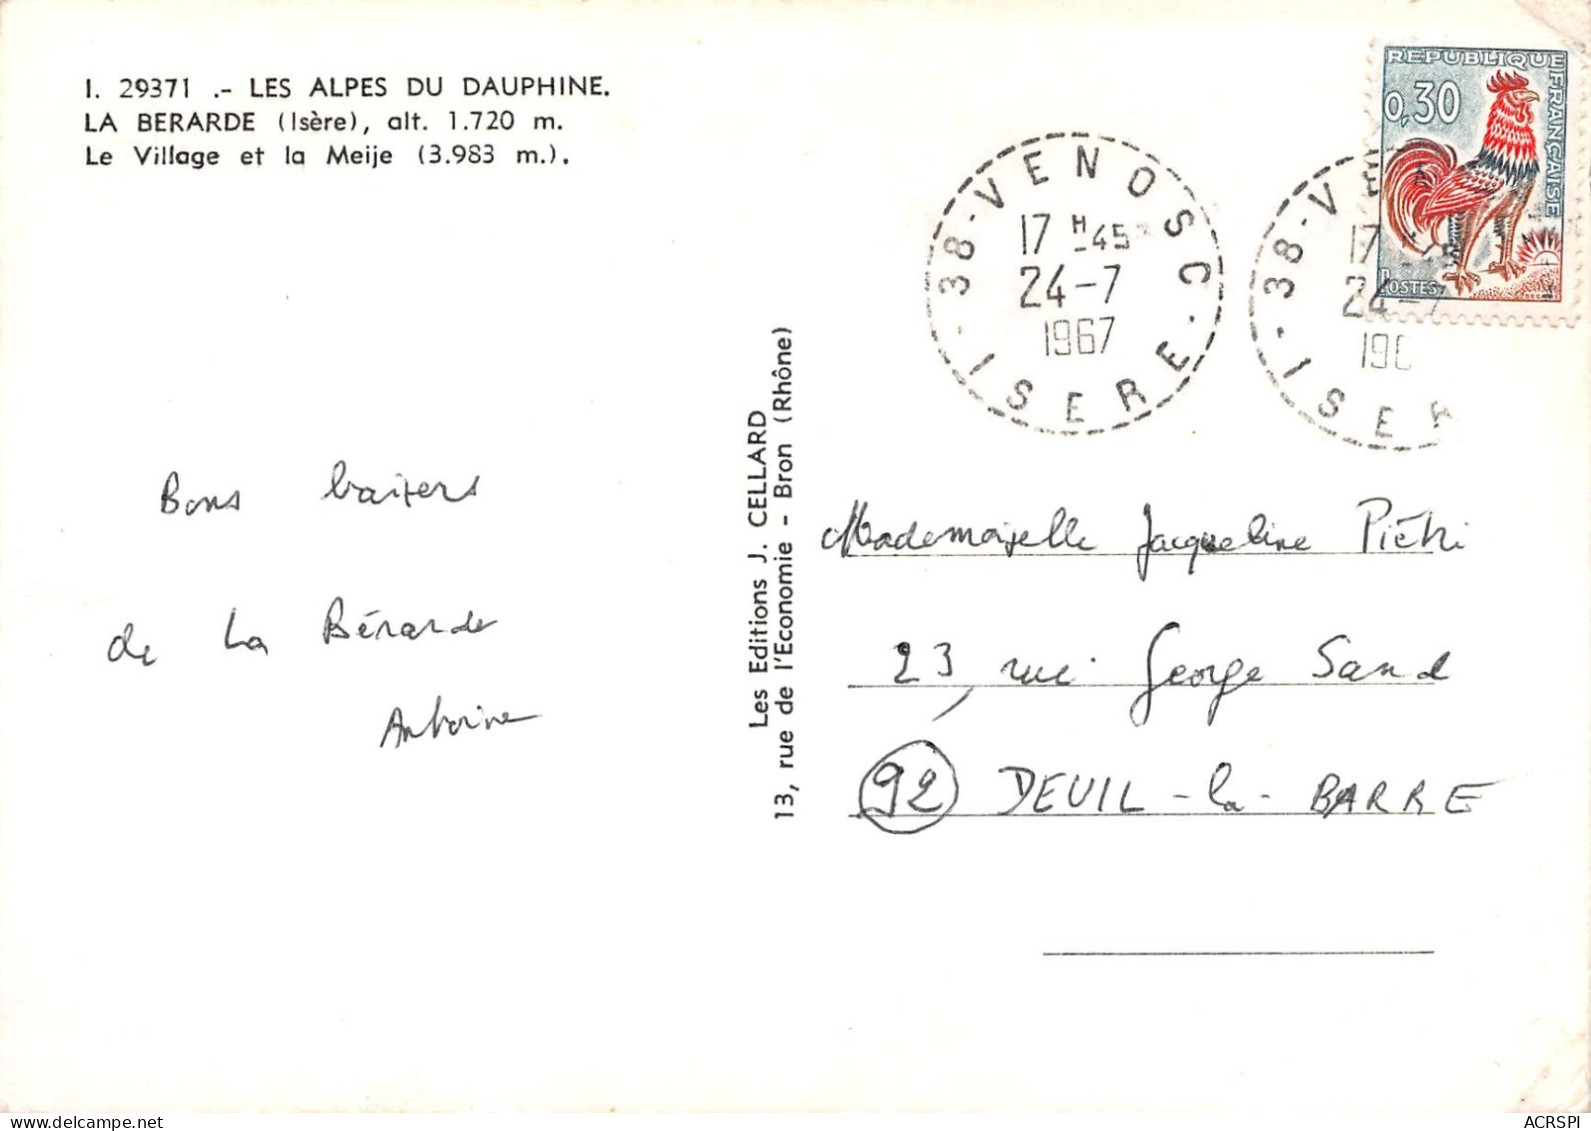 I. 29371 .- LES ALPES DU DAUPHINE.
LA BERARDE (Isère), alt. 1.720 m.
Le Village et la Meije (3.983 m.).
Bons baisers
de La Bérarde
Antoine
Les Editions J. CELLARD
13, rue de l'Economie - Bron (Rhône)
REPUBLIQUE FRANÇAISE
0,30
POSTES
38 - VENOSC - ISERE -
17 H -45
24-7
1967
38 - VE
17
24-7
190
- ISER
Mademoiselle Jacqueline Piétri
23, rue George Sand
92 DEUIL-la-BARRE
ACRSPI